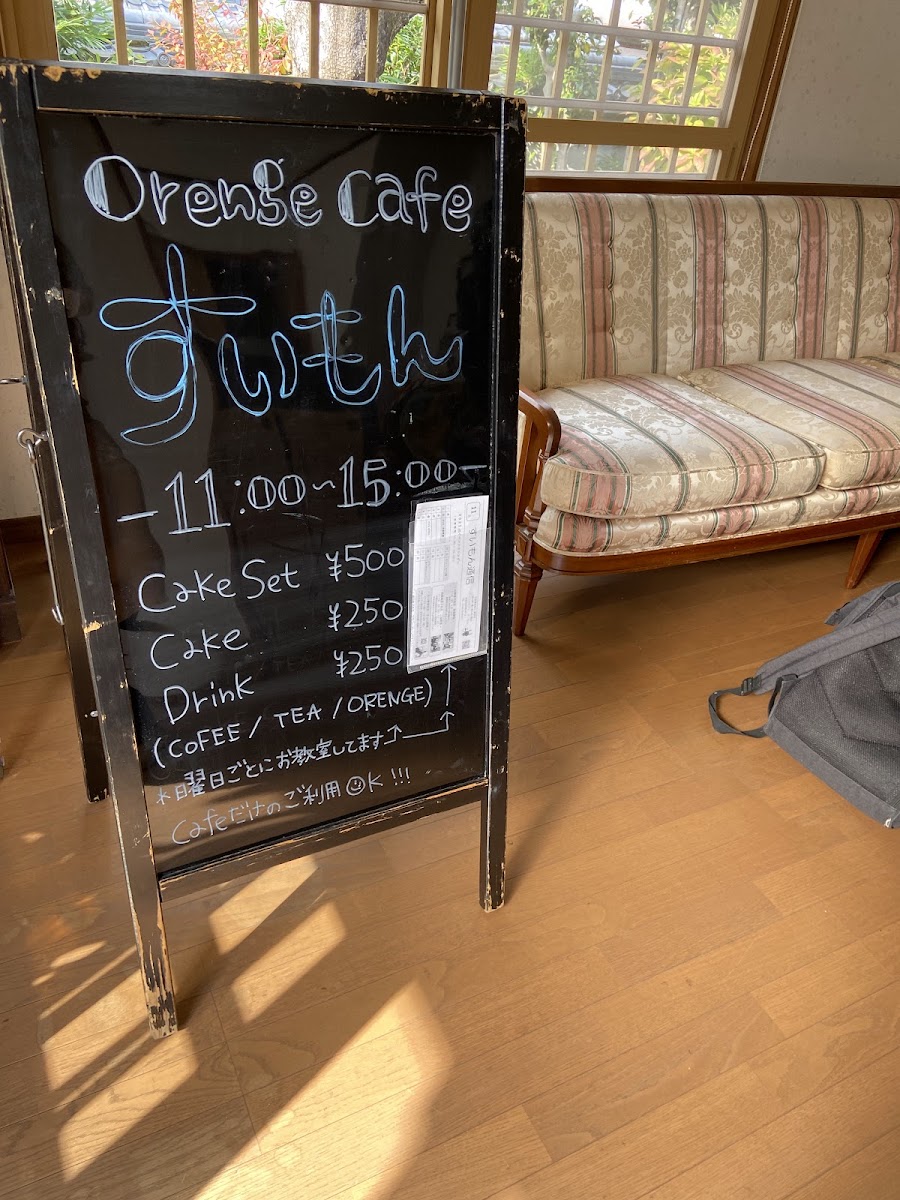 Orenge Cafe
すいもん
-11:00~15:00-
Cake Set ¥500
Cake ¥250
Drink ¥250
(COFEE / TEA / ORENGE)
*曜日ごとにお教室してます
Cafeだけのご利用☺K!!!
すいもん酒店